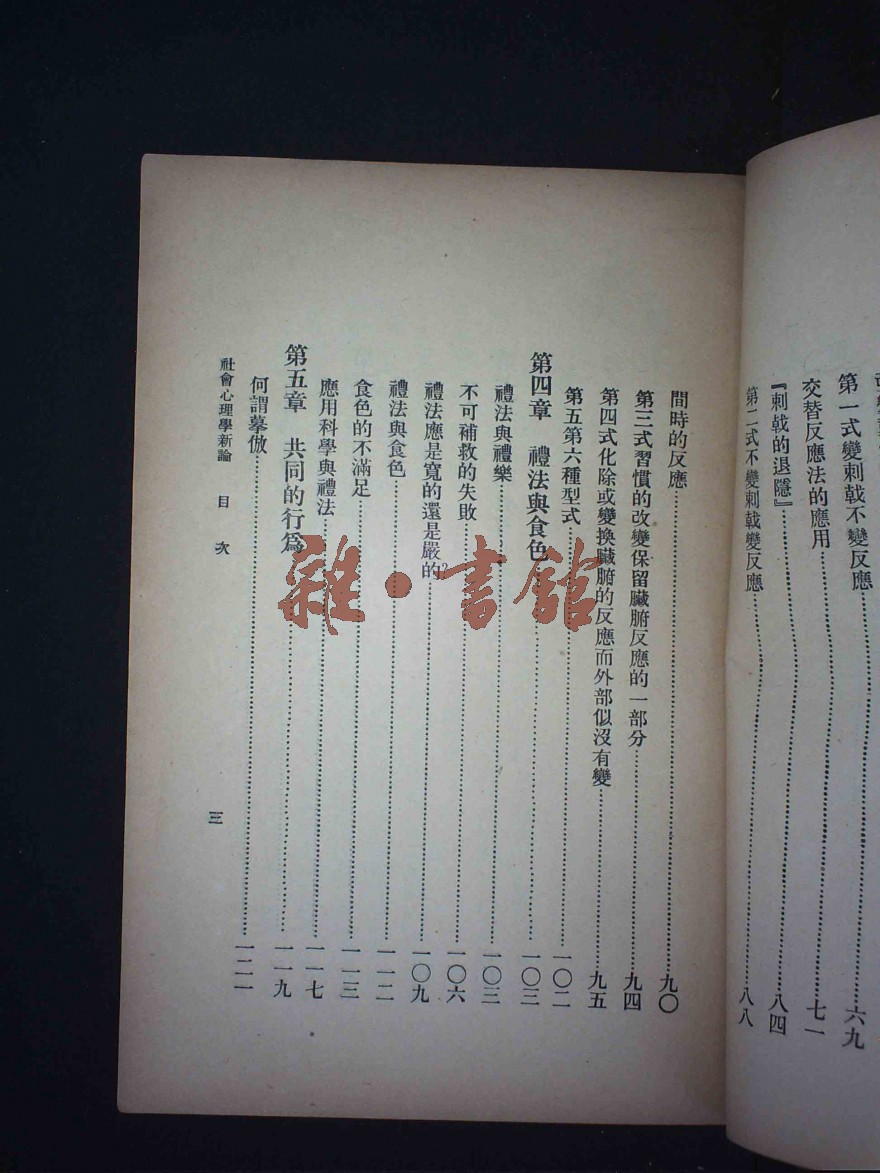 第一式變刺戟不變反應……六九
交替反應法的應用……七一
『刺戟的退隱』……八四
第二式不變刺戟變反應……八八
間時的反應……九〇
第三式習慣的改變保留臟腑反應的一部分……九四
第四式化除或變換臟腑的反應而外部似沒有變……九五
第五第六種型式……一〇二
第四章 禮法與食色……一〇三
禮法與禮樂……一〇三
不可補救的失敗……一〇六
禮法應是寬的還是嚴的?……一〇九
禮法與食色……一一二
食色的不滿足……一一三
應用科學與禮法……一一七
第五章 共同的行爲……一一九
何謂摹倣……一二一
社會心理學新論 目次 三
雜·書館